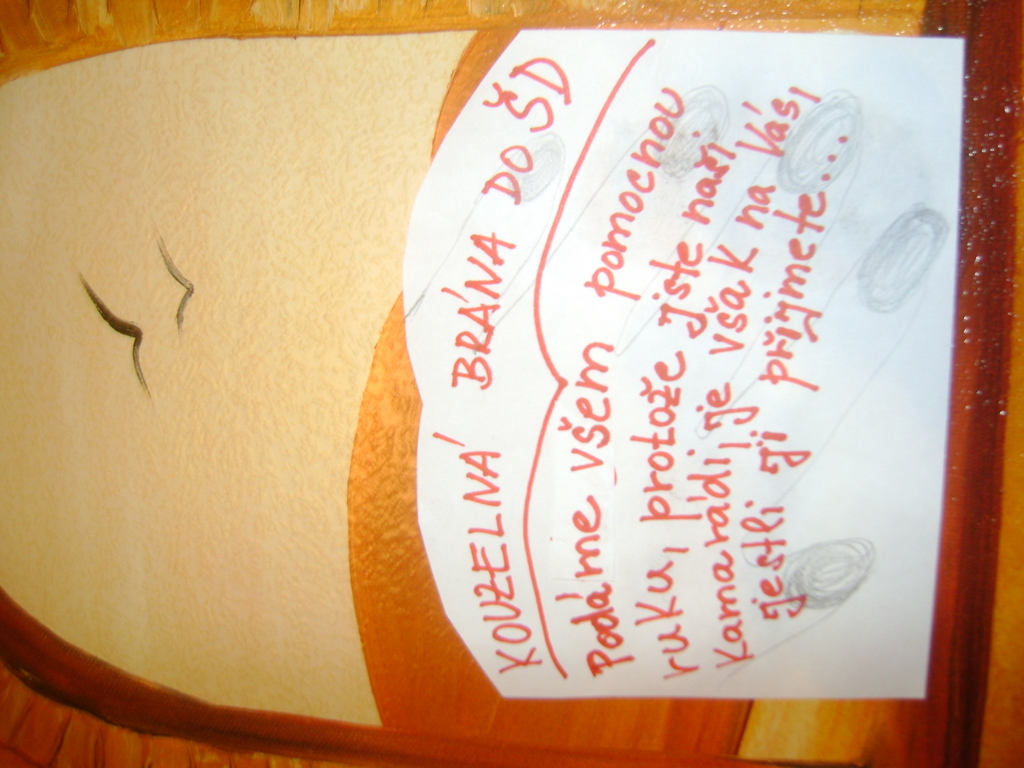 KOUZELNÁ BRÁNA DO ŠD
Podáme všem pomocnou
ruku, protože jste naši
kamarádi, je však na Vás,
jestli ji přijmete...